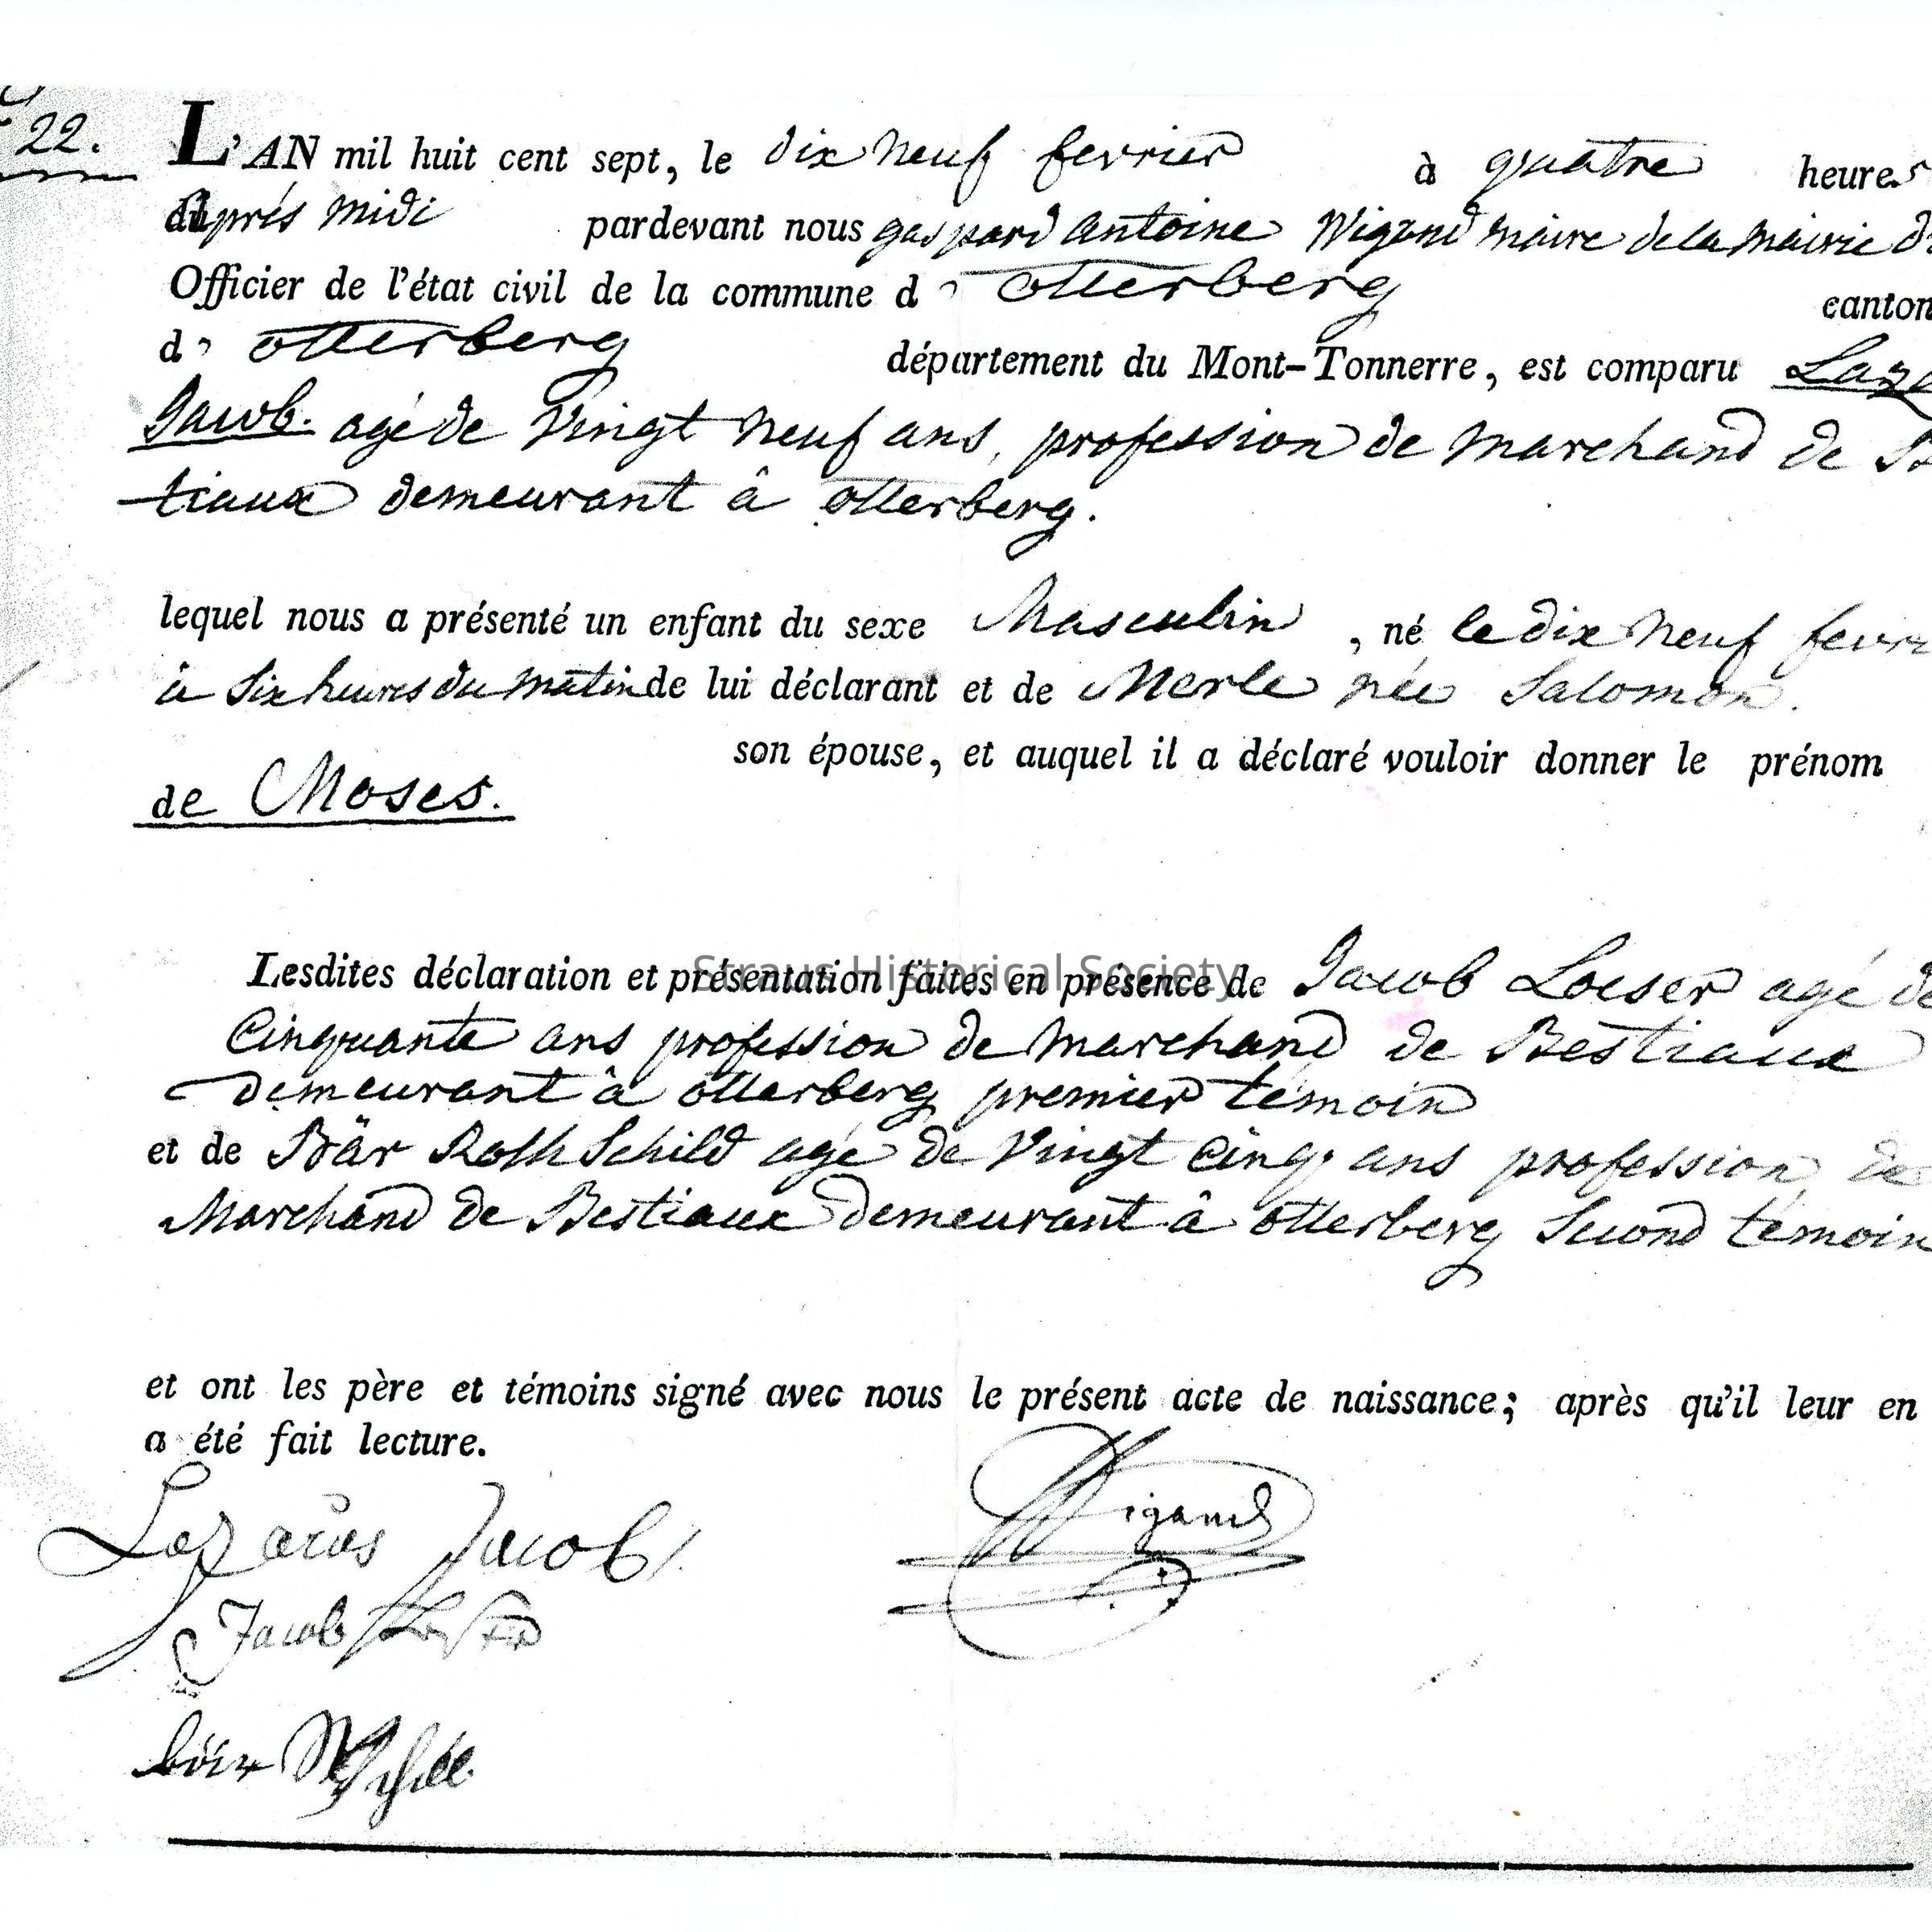 22.
L'AN mil huit cent sept, le dix neuf fevrier à quatre heures
après midi pardevant nous gaspard Antoine Wigand maire de la mairie
Officier de l'état civil de la commune d'otterberg canton
d'otterberg département du Mont-Tonnerre, est comparu
Jacob. agé de Vingt neuf ans, profession de marchand de
tiaux demeurant â otterberg.
lequel nous a présenté un enfant du sexe Masculin, né le dix neuf
à Six heures du matin de lui déclarant et de Merle née Salomon.
son épouse, et auquel il a déclaré vouloir donner le prénom
de Moses.
Lesdites déclaration et présentation faites en présence de Jacob Loeser agé de
Straus Historical Society
Cinquante ans profession de marchand de Bestiaux
demeurant â otterberg premier témoin
et de Bär RothSchild agé de Vingt Cinq ans profession de
Marchand de Bestiaux demeurant â otterberg Second témoin
et ont les père et témoins signé avec nous le présent acte de naissance; après qu'il leur en
a été fait lecture.
Lazarus Jacob Wigand
Jacob